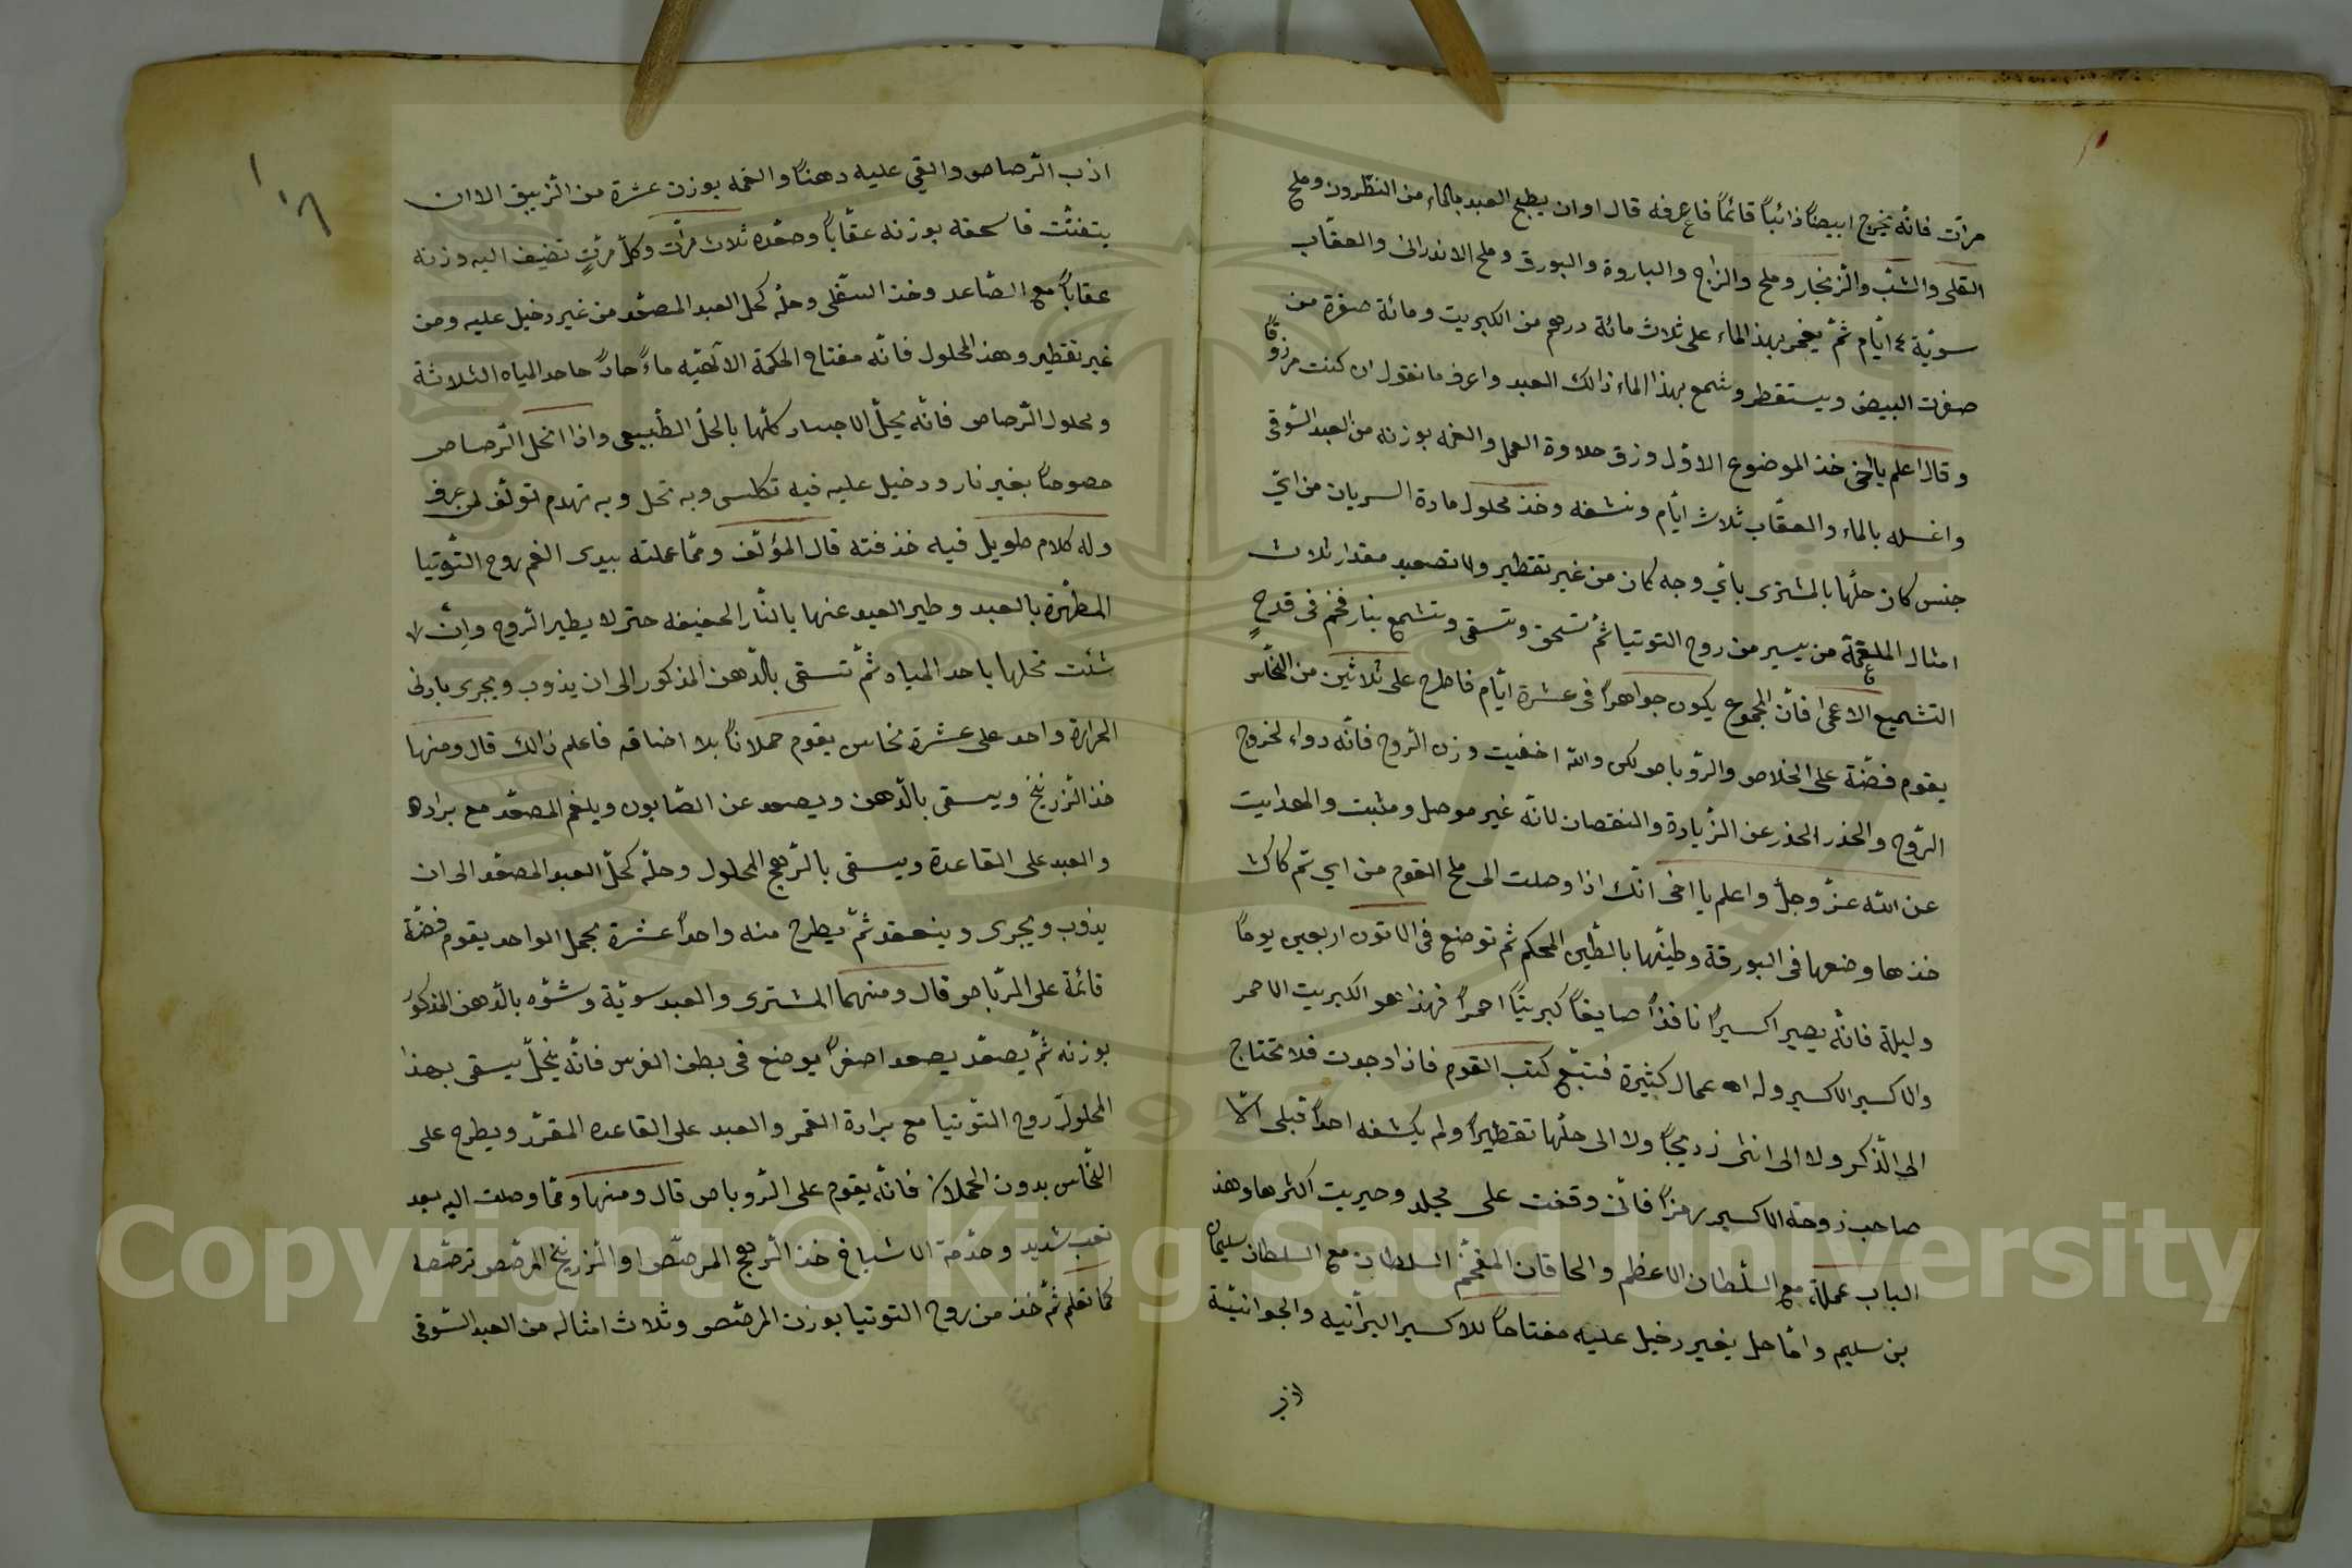 مرات فانّه يخرج ابيضاً ذائباً قائماً فاعرفه قال اوان يطبخ العبد بالماء من النطرون وملح
القلى والشب والزنجار وملح والزاج والباروة والبورق وملح الاندرانى والعقاب
سويّة ٤ ايّام ثمّ يغمر بهذا الماء على ثلاث مائة درهم من الكبريت ومائة صفرة من
صفرت البيض ويستقطر وشمع بهذا الماء ذالك العبد واعرف ما نقول ان كنت مرزوقاً
وقال اعلم يا اخى خذ الموضوع الاوّل وزق حلاوة العمل والغمه بوزنه من العبد السّوقى
واغسله بالماء والعقّاب ثلاث ايّام ونشفه وخذ محلول مادة السريان من اىّ
جنس كان حلّها بالمشترى باىّ وجه كان من غير تقطير ولا تصعيد مقدار ثلاث
امثال الملغمة من يسير من روح التوتيا ثمّ تسحق وتسقى وتشمع بنار فخم فى قدح
التشميع الاعمى فانّ المجموع يكون جواهراً فى عشرة ايّام فاطرح على ثلاثين من النحّاس
يقوم فضّة على الخلاص والرّوباص ولكن والله اخفيت وزن الرّوح فانّه دواء لخروج
الرّوح والحذر الحذر عن الزّيادة والنقصان لانّه غير موصل ومثبت والهدايت
عن الله عزّ وجلّ واعلم يا اخى انّك اذا وصلت الى ملح القوم من اي تم كاك
خذها وضعها فى البورقة وطيّنها بالطّين المحكم ثم توضع فى الاتون اربعين يوماً
وليلة فانّه يصير اكسيراً نافذاً صايغاً كبريتاً احمراً فهذا هو الكبريت الاحمر
والاكسير الاكسير وله اعمال كثيرة فتتبّع كتب القوم فاذا وجوت فلا تحتاج
الى الذّكر ولا الى انثى زديجاً ولا الى حلّها تقطيراً ولم يكشفه احداً قبلى الّا
صاحب زوجة الاكسير رمزاً فانّى وقفت على مجلد وحيريت اكثرها وهذ
الباب عملة مع السّلطان الاعظم والخاقان المفخّم السلطان مع السلطان سليمان
بن سليم وامّا حل بغير دخيل عليه مفتاحاً للاكسير البرّانيه والجوانيّة
اذب
١٦
اذب الرّصاص والقي عليه دهناً والغمه بوزن عشرة من الزّيبق الا ان
يتفتّت فاسحقه بوزنه عقّاباً وصعّده ثلاث مرّات وكلّ مرّتٍ تضيف اليه وزنه
عقاباً مع الصّاعد وخذ السّفلى وحلّه كحل العبد المصعّد من غير دخيل عليه ومن
غير تقطير وهذ المحلول فانّه مفتاح الحكمة الالهيّه ماءً حادّ احد المياه الثلاثة
ومحلول الرّصاص فانّه يحلّ الاجساد كلّها بالحلّ الطّبيعى واذا انحل الرّصاص
خصوصاً بغير نار ودخيل عليه فيه تكلس وبه تحل وبه تهدم تولّف لمن عرف
وله كلام طويل فيه خذفته قال المؤلّف وممّا عملته بيدى الغم روح التّوتيا
المطهّرة بالعبد وطير العبد عنها بالنّار الخفيفه حتى لا يطير الرّوح وان
شئت تحلها باحد المياه ثمّ تسقى بالدّهن المذكور الى ان يذوب ويجرى بادنى
الحرارة واحد على عشرة نحاس يقوم حملاناً بلا اضافه فاعلم ذالك قال ومنها
خذ الزرنيخ ويسقى بالدّهن ويصعد عن الصّابون ويلغم المصعّد مع براده
والعبد على القاعدة ويسقى بالرّهج المحلول وحلّه كحلّ العبد المصعّد الى ان
يذوب ويجرى وينعقد ثمّ يطرح منه واحداً عشرة يحمل الواحد يقوم فضّة
قائمة على الرّباص وقال ومنهما المشترى والعبد سويّة وشوّه بالدّهن المذكور
بوزنه ثمّ يصعّد يصعد اصفراً يوضع فى بطن الفرس فانّه ينحلّ يسقى بهذا
المحلول روح التّوتيا مع برادة القمر والعبد على القاعده المقرّر ويطرح على
النّحّاس بدون الحملان فانّه يقوم على الرّوباص قال ومنها وممّا وصلت اليه بعد
تعب شديد وخدمة الاشياخ خذ الرّهج المرصّص او الزرنيخ المرصّص ترصّصه
كما تعلم ثمّ خذ من روح التوتيا بوزن المرصّص وثلاث امثاله من العبد السّوقى
Copyright © King Saud University